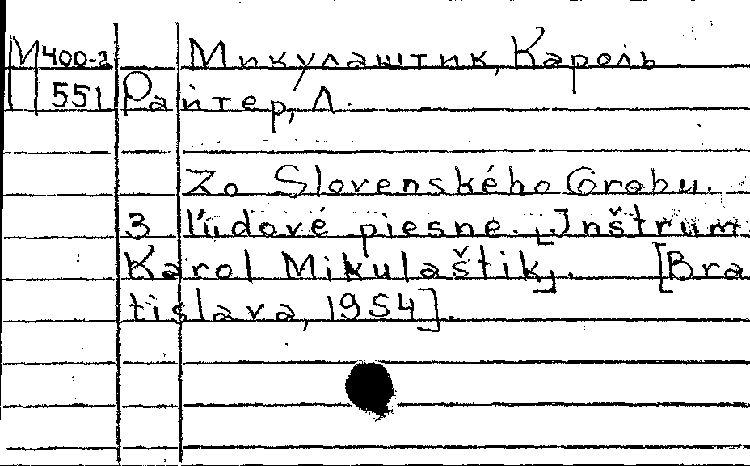 М 400-2 Микулаштик, Кароль
551 Райтер, Л.
Zo Slovenského Grobu.
3 ľudové piesne. [Inštrum.
Karol Mikulaštik]. [Bra
tislava, 1954].